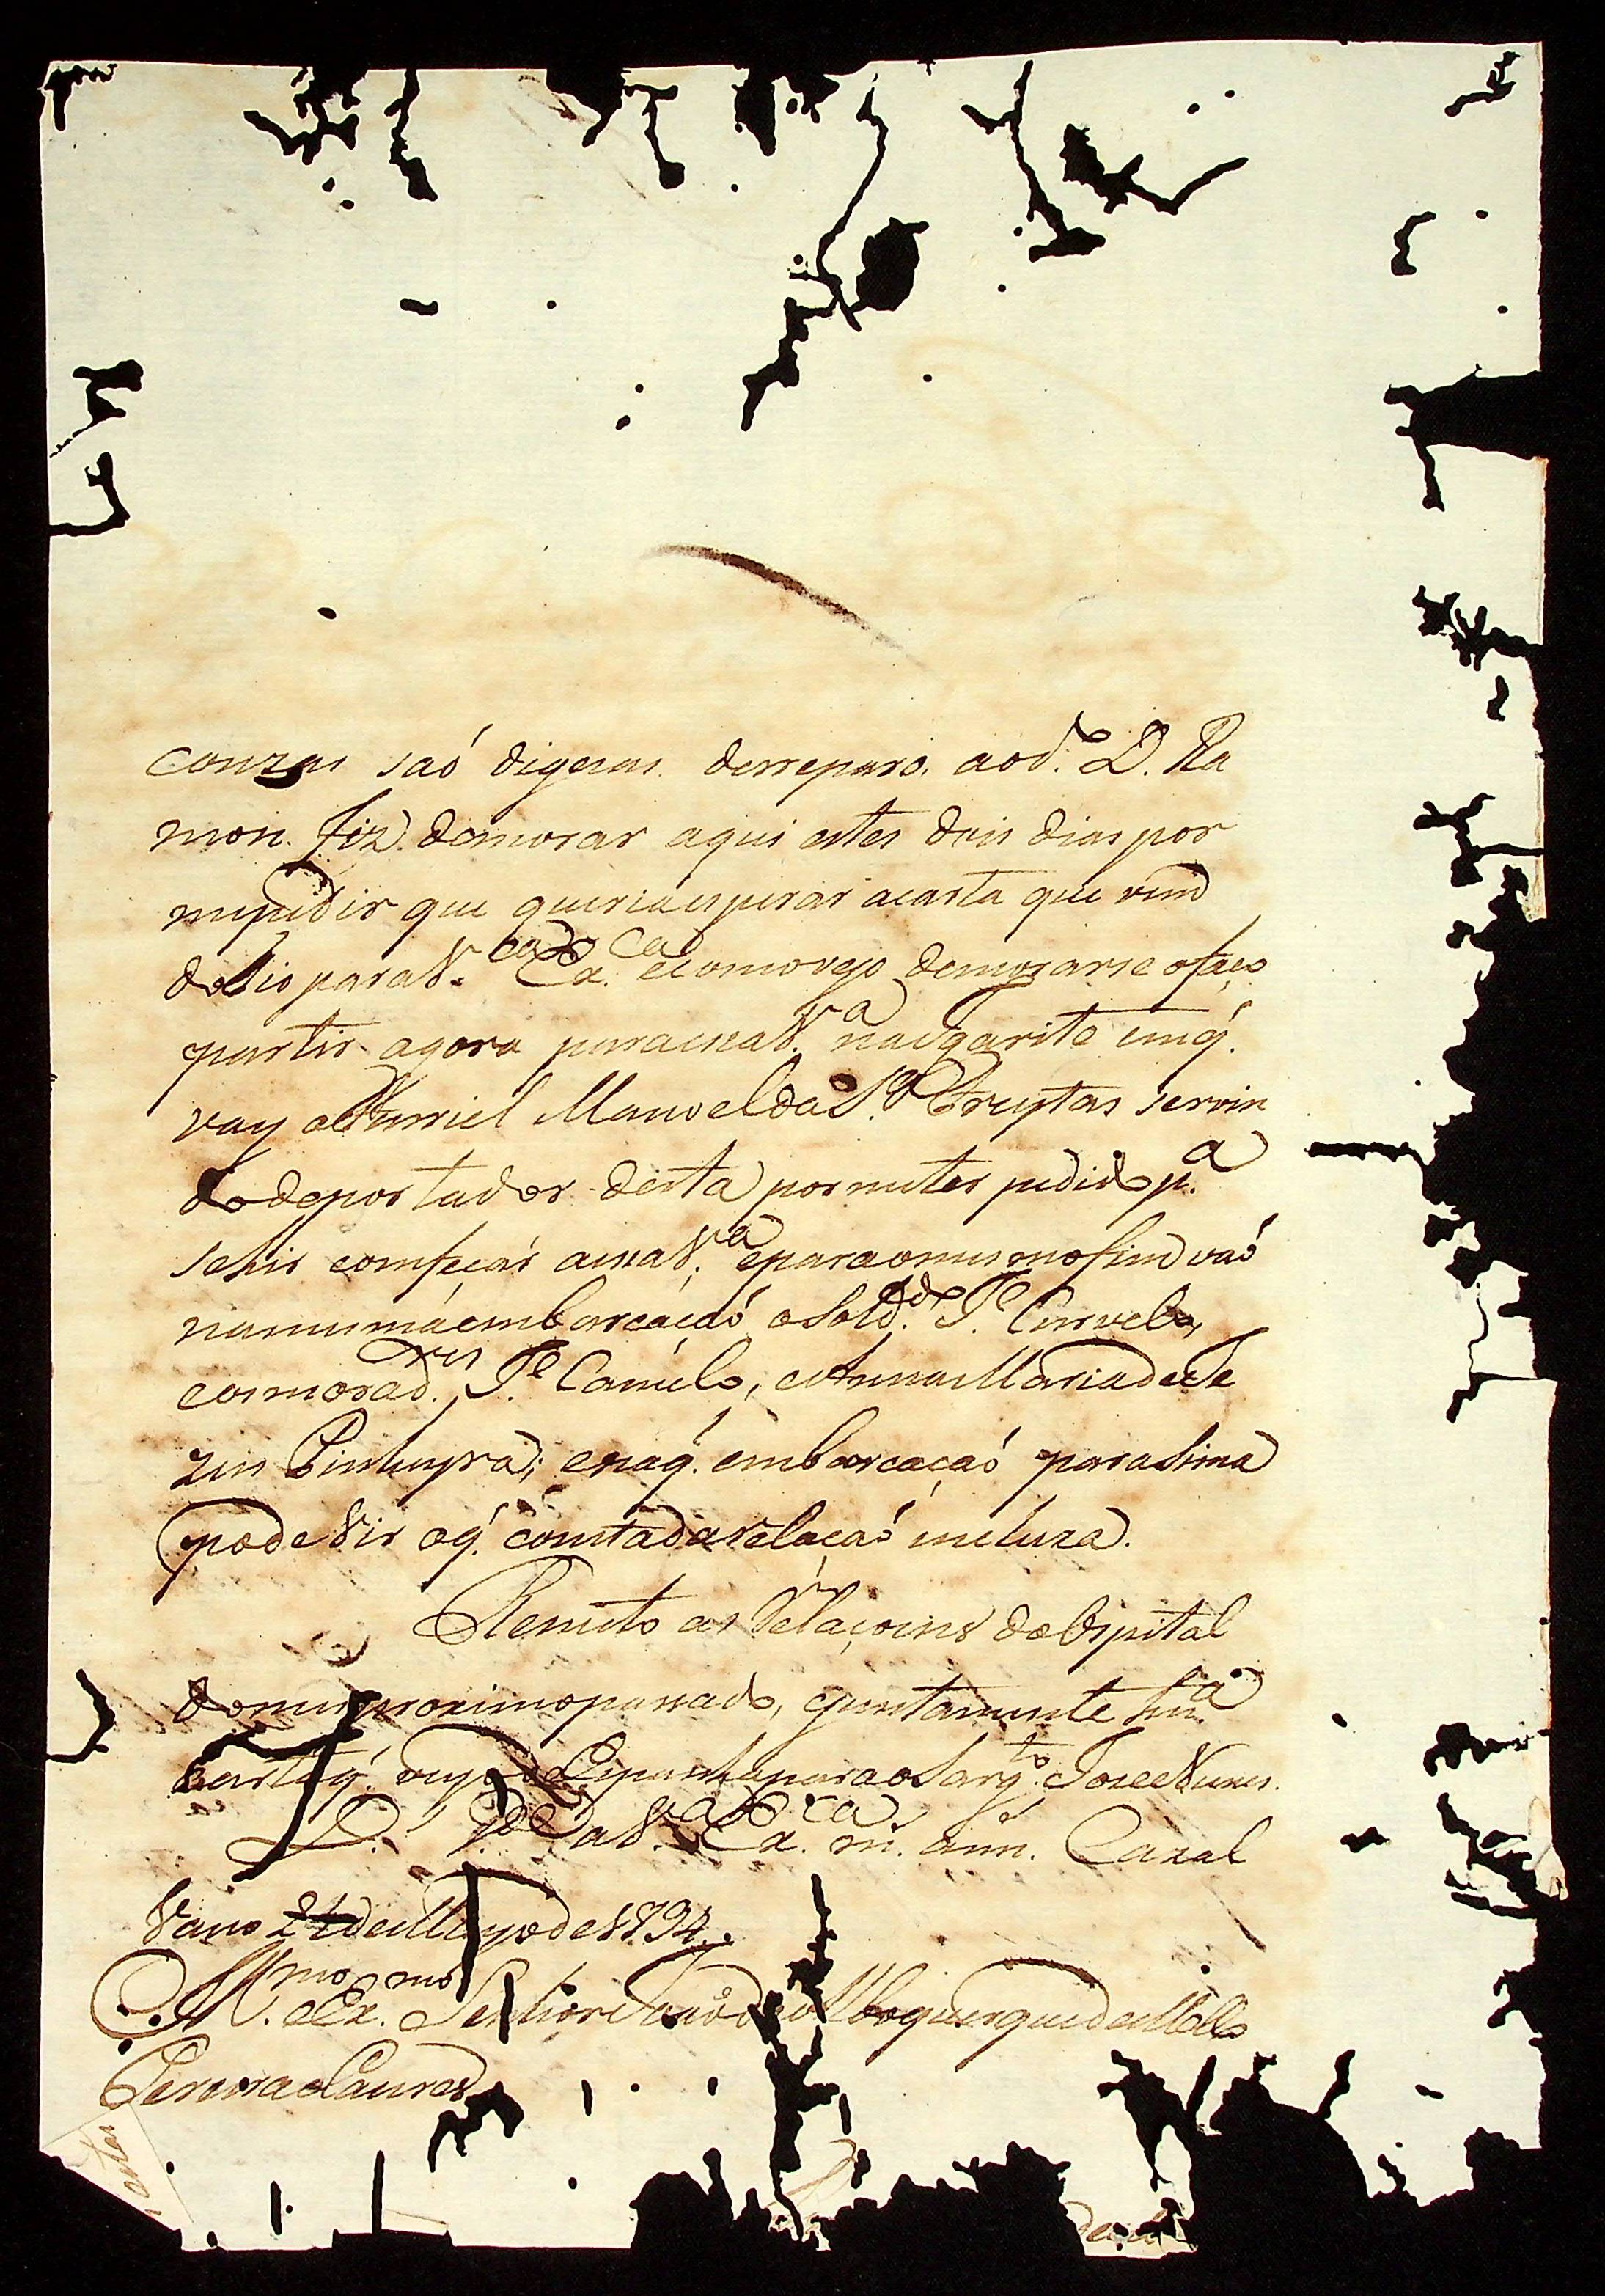 couzas saó digenas derreparo. aod.º D. Ra
mon. fiz demorar aqui estes dois dias por
mepedir que queriaesperar acarta que vem
do Rio paraV. Ex.ca ecomovejo demorarse ofaço
partir agora paraessaV.a naIgarite emq̃.
vay oFurriel Manoel da S.ª Freytas servin
dodeportador desta por meter pedido p.a
sehir comfeçar aessaV.a eparaomesmofim vaó
namesmáembarcaçaó oSold.do J.e Curvelo,
eosmorad.res J.e Camelo, eAnnaMariadeJe
zus ; enaq̃. embarcaçaó parasima
podeVir oq̃. constadaRelaçaó incluza.
Remeto as Relaçoins doOspital
domesproximopassado, ejuntamente hũa
cartaq̃. veyo deEspanha paraoSarg.to JozeNunes.
D.s g.de aV.a Ex.ca m. ann. Cazal
Vasco 24deMayode1794.
Ill.mo eEx.mo Senhor Joaó deAlboquerquedeMello
PereyraeCaceres